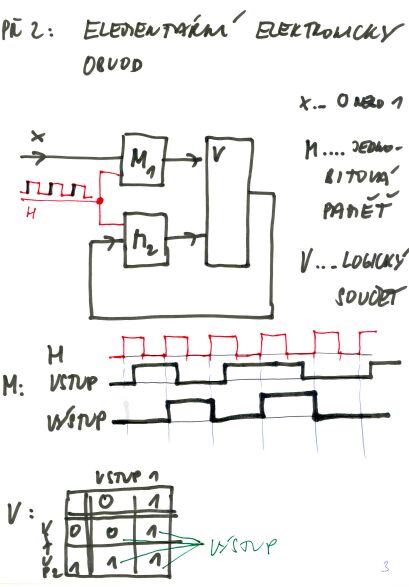 PŘ 2: ELEMENTÁRNÍ ELEKTRONICKÝ
OBVOD
X... 0 NEBO 1
M.... JEDNO-
BITOVÁ
PAMĚŤ
V... LOGICKÝ
SOUČET
X
M1
V
H
M2
H
M: VSTUP
VÝSTUP
VSTUP 1
0 1
V: 0 0 1
1 1 1
VÝSTUP
3